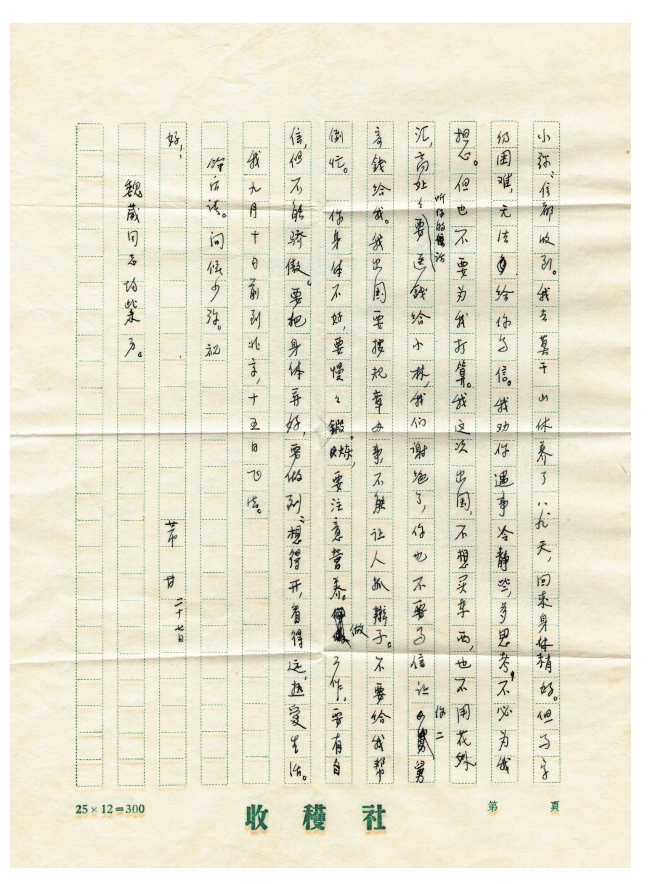 小弥：信都收到。我去莫干山休养了八九天，回来身体稍好。但写字
仍困难，无法给你写信。我劝你遇事冷静些，多思考，不必为我
担心。但也不要为我打算。我这次出国，不想买东西，也不用花外
汇，高处处要送钱给小林，我们谢绝了，你也不要写信让你二舅
听你的话
寄钱给我。我出国要按规章办事，不能让人抓辫子。不要给我帮
倒忙。 你身体不好，要慢慢锻炼，要注意营养。做工作，要有自
信，但不能骄傲。要把身体弄好，要做到：想得开，看得远，热爱生活。
我九月十日前到北京，十五日飞法。
余后谈。问候少弥。祝
好！
芾甘 二十七日
魏葳同志均此
25×12=300
收穫社
第 頁